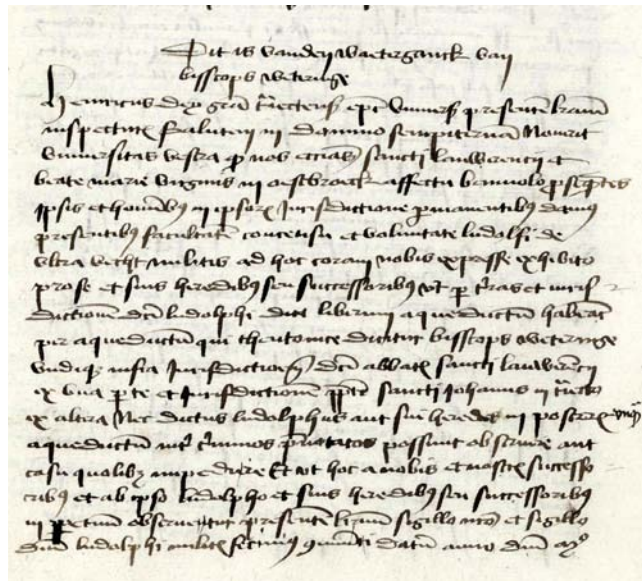 Dit is vanden waeterganck van
bisscops weteringe
Henricus dey gra traiectens epc vniuers presente lram
inspecturis salutem in domino sempiternam Nouerit
vniuersitas vestra qd nos eccias sancti lauwerencii et
beate marie virginis in oestbroeck affectu beniuolo psequetes
ipsis et hominibus in ipsorum Jurisdictione pmanentibus damus
presentibus facultate concensu et voluntate ludolfi de
vltra vecht militis ad hoc coram nobis expresse exhibito
pro se et suis heredibus seu successoribus vt p tras et iuris
dictione dci ludolphi dict liberum aqueductum habeat
per aqueductum qui theutonice dicitur bisscops weteringe
vndiqz infra Jurisdictionem dci abbatis sancti lauwerecii
ex vna pte et Jurisdictionem ppti sancti Johannis in traiecto
ex altera Nec dictus ludolphus aut sui heredes in posterum vmqm
aqueductum int tminos pnotatos possint obstruire aut
casu quolibz impedire Et vt hoc a nobis et nostris successo
ribus et ab ipso ludolpho et suis heredibus seu successoribus
in ppetuum obseruetur presentem lram sigillo nro et sigillo
dicti ludolphi militis fecimus datum anno dni mo